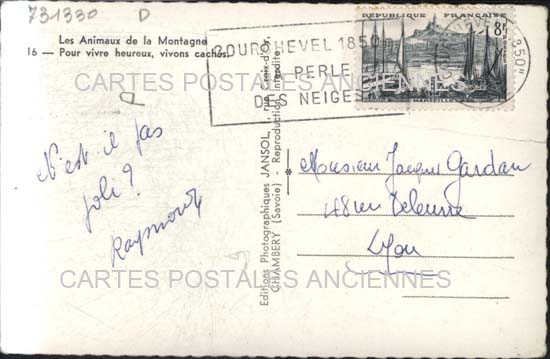 731330 D
Les Animaux de la Montagne
16 — Pour vivre heureux, vivons cachés.
COURCHEVEL 1850m
PERLE
DES NEIGES
RÉPUBLIQUE FRANÇAISE
8F
MARSEILLE
CARTES POSTALES ANCIENNES
N'est il pas
joli ?
Raymond
Editions Photographiques JANSOL, rue Croix-d'Or,
CHAMBÉRY (Savoie) - Reproduction interdite
Monsieur Jacques Gardan
48 rue
Lyon
CARTES POSTALES ANCIENNES